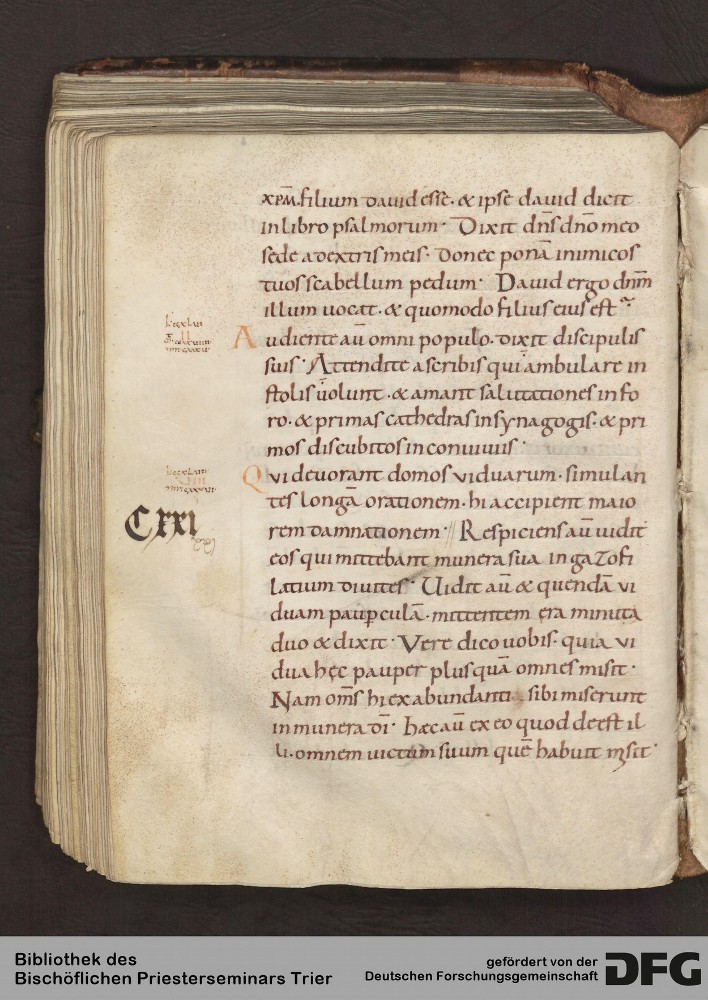 xpm̄. filium dauid esse. & ipse dauid dicit
in libro psalmorum. Dixit dn̄s dn̄o meo
sede a dextris meis. Donec ponā inimicos
tuos scabellum pedum. Dauid ergo dn̄m
illum uocat. & quomodo filius eius est
Audiente aū omni populo. dixit discipulis
suis. Attendite a scribis qui ambulare in
stolis uolunt. & amant salutationes in fo
ro. & primas cathedras in synagogis. & pri
mos discubitos in conuiuiis.
Qui deuorant domos viduarum. simulan
tes longā orationem. hi accipient maio
CXXI
rem damnationem. // Respiciens aū uidit
eos qui mittebant munera sua in gazofi
latium diuites. Uidit aū & quendā vi
duam paupculā. mittentem era minuta
duo & dixit. Vere dico uobis. quia vi
dua hęc pauper plus quā omnes misit.
Nam om̄s hi ex abundanti sibi miserunt
in munera dī. haec aū ex eo quod deest il
li. omnem uictum suum quē habuit misit.
Bibliothek des
Bischöflichen Priesterseminars Trier
gefördert von der
Deutschen Forschungsgemeinschaft
DFG